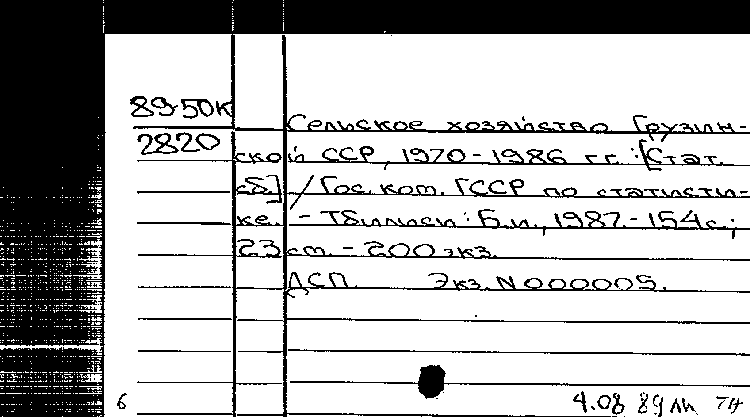 89-50к
2820
Сельское хозяйство Грузин-
ской ССР, 1970-1986 гг.: [Стат.
сб.] / Гос. ком. ГССР по статисти-
ке. - Тбилиси: Б.и., 1987. - 154 с.;
23 см. - 200 экз.
ДСП. Экз. N 000005.
6 4.08 89